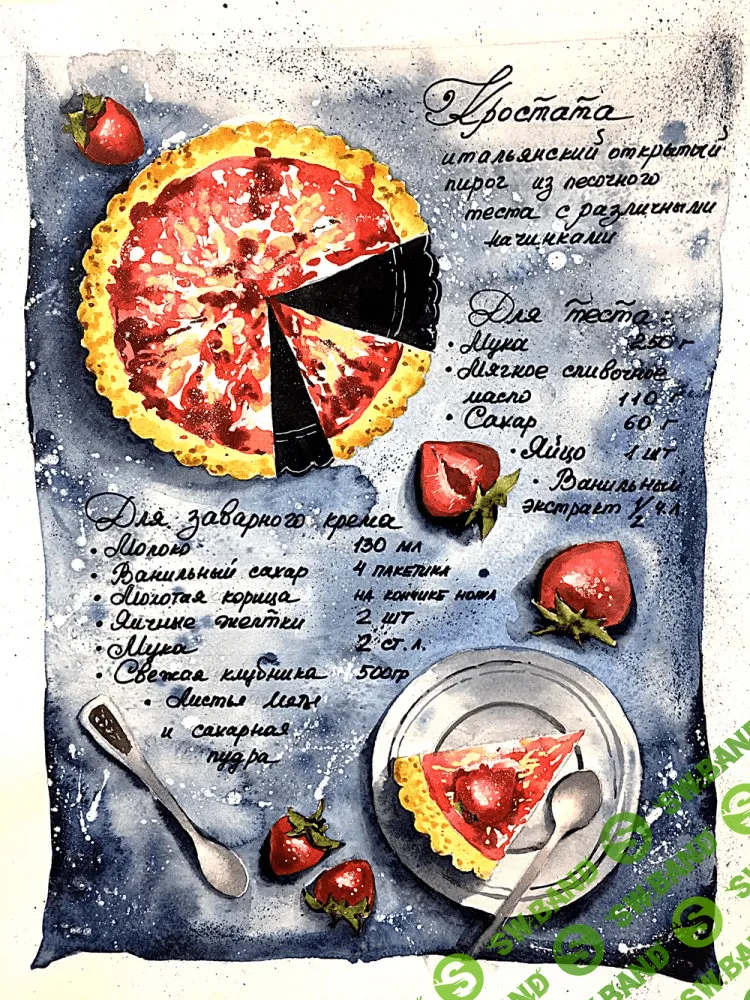 Кростата
итальянский открытый
пирог из песочного
теста с различными
начинками
Для теста:
• Мука 250 г
• Мягкое сливочное
масло 110 г
• Сахар 60 г
• Яйцо 1 шт
• Ванильный
экстракт 1/2 ч.л
Для заварного крема
• Молоко 130 мл
• Ванильный сахар 4 пакетика
• Молотая корица на кончике ножа
• Яичные желтки 2 шт
• Мука 2 ст. л.
• Свежая клубника 500гр
• Листья мяты
и сахарная
пудра
SW.BAND
SW.BAND
SW.BAND
SW.BAND
SW.BAND